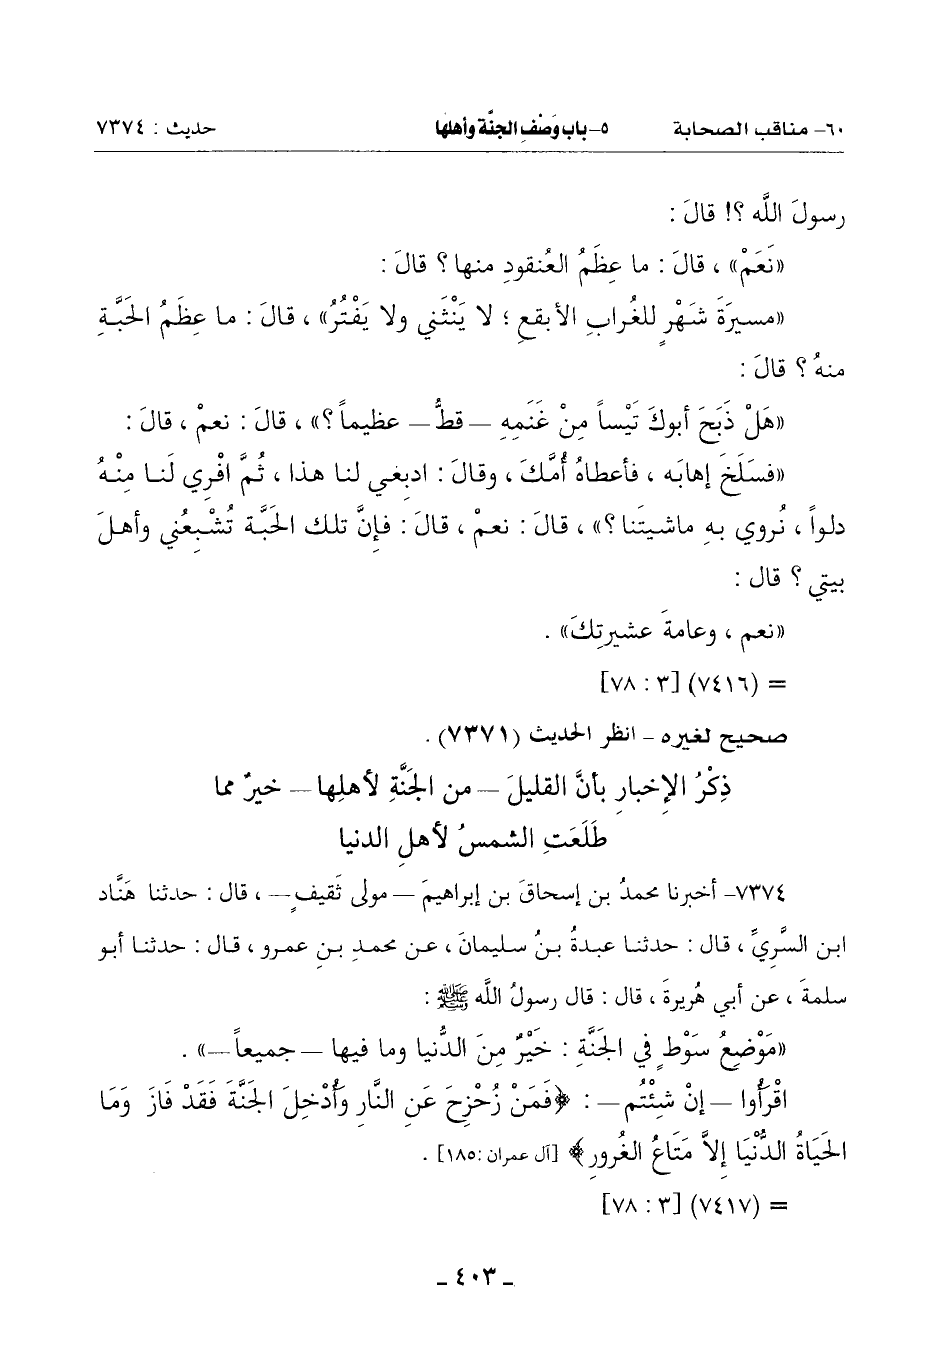 ٦٠- مناقب الصحابة ٥- باب وَصْفِ الجنَّة وأهلها حديث : ٧٣٧٤
رسولَ اللَّه ؟! قالَ :
«نَعَمْ» ، قالَ : ما عِظَمُ العُنقودِ منها ؟ قالَ :
«مسيرَةَ شَهْرٍ للغُرابِ الأبقعِ ؛ لا يَنْثَني ولا يَفْتُرُ» ، قالَ : ما عِظَمُ الحَبَّةِ
منهُ ؟ قالَ :
«هَلْ ذَبَحَ أبوكَ تَيْساً مِنْ غَنَمِهِ – قطُّ – عظيماً ؟» ، قالَ : نعمْ ، قالَ :
«فسَلَخَ إهابَه ، فأعطاهُ أُمَّكَ ، وقالَ : ادبغي لنا هذا ، ثُمَّ افْرِي لَنا مِنْهُ
دلواً ، نُروي بهِ ماشيتَنا ؟» ، قالَ : نعمْ ، قالَ : فإنَّ تلك الحَبَّة تُشْبِعُني وأهلَ
بيتي ؟ قال :
«نعم ، وعامةَ عشيرتِكَ» .
= (٧٤١٦) [٣ : ٧٨]
صحيح لغيره – انظر الحديث (٧٣٧١) .
ذِكْرُ الإخبارِ بأنَّ القليلَ – من الجَنَّةِ لأهلِها – خيرٌ مما
طَلَعَتِ الشمسُ لأهلِ الدنيا
٧٣٧٤- أخبرنا محمدُ بن إسحاقَ بن إبراهيمَ – مولى ثَقيفٍ – ، قال : حدثنا هَنَّاد
ابن السَّريِّ ، قال : حدثنا عبدةُ بنُ سليمانَ ، عن محمدِ بنِ عمرو ، قال : حدثنا أبو
سلمةَ ، عن أبي هُريرةَ ، قال : قال رسولُ اللَّه ﷺ :
«مَوْضِعُ سَوْطٍ في الجَنَّةِ : خَيْرٌ مِنَ الدُّنيا وما فيها – جميعاً –» .
اقْرَأُوا – إنْ شِئْتُم – : ﴿فَمَنْ زُحْزِحَ عَنِ النَّارِ وَأُدْخِلَ الجَنَّةَ فَقَدْ فَازَ وَمَا
الحَيَاةُ الدُّنْيَا إلاَّ مَتَاعُ الغُرورِ﴾ [آل عمران :١٨٥] .
= (٧٤١٧) [٣ : ٧٨]
- ٤٠٣ -